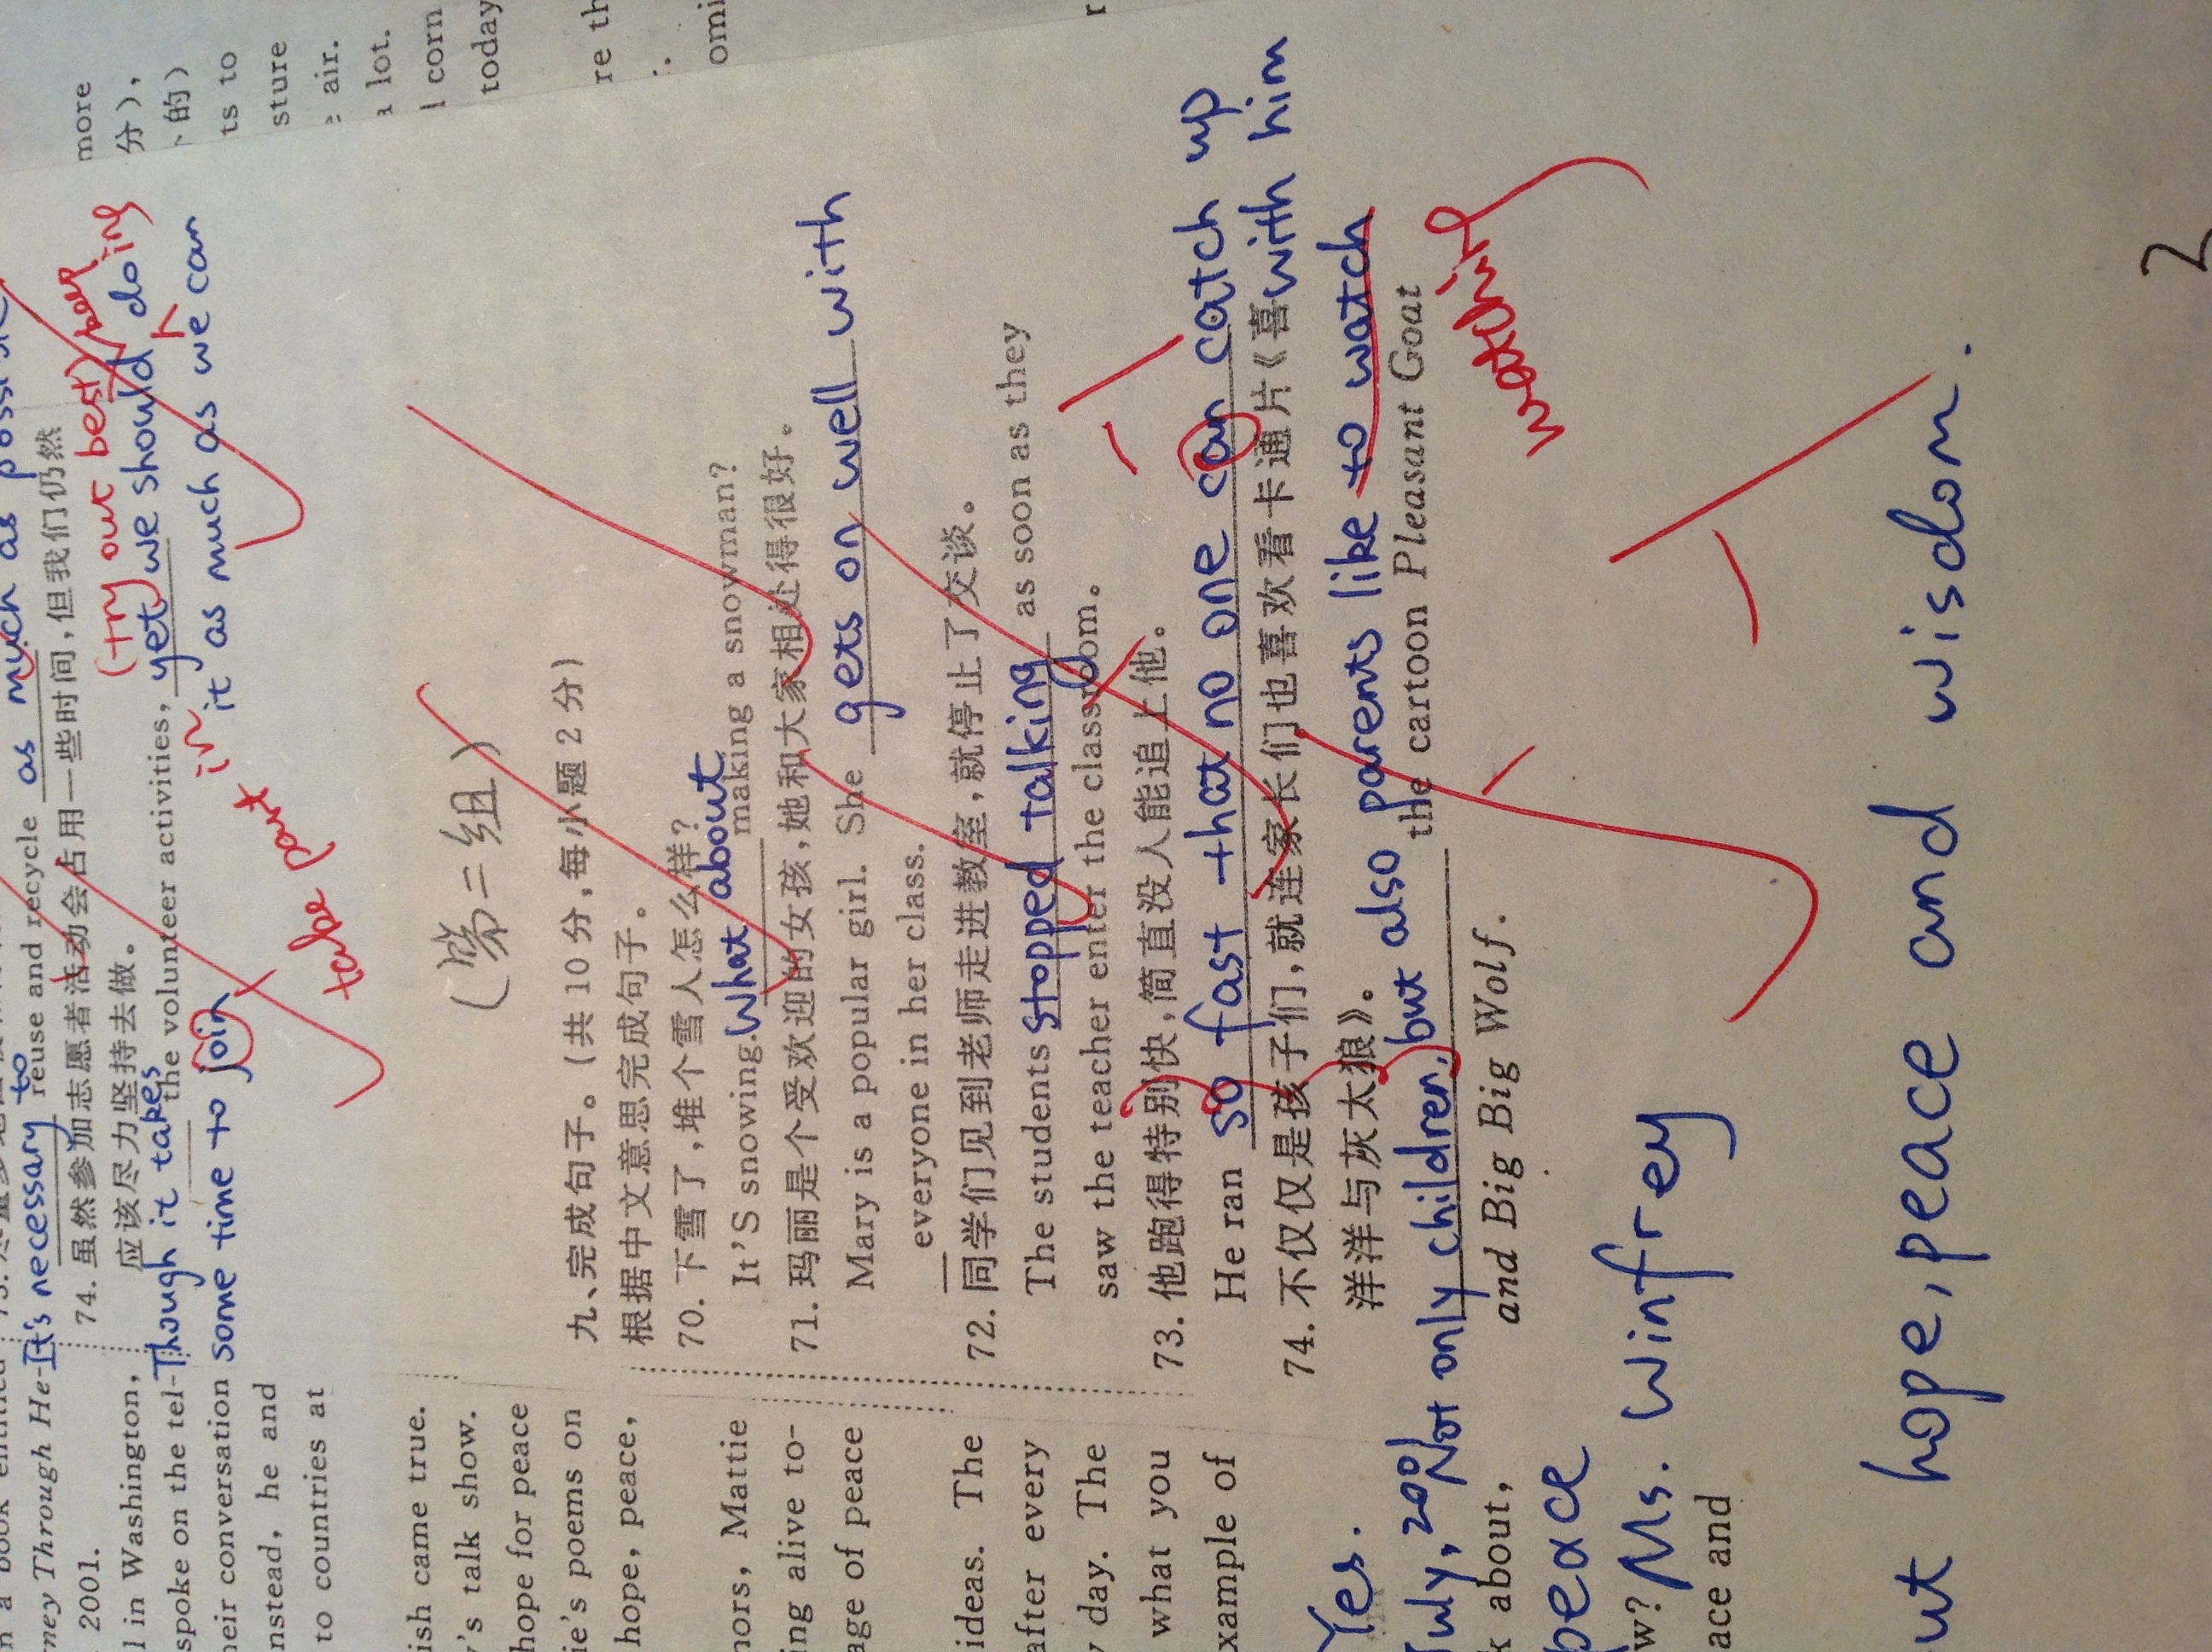 ney Through He-
2001.
l in Washington,
spoke on the tel-
heir conversation
nstead, he and
to countries at
ish came true.
's talk show.
hope for peace
ie's poems on
hope, peace,
nors, Mattie
ing alive to-
age of peace
ideas. The
after every
day. The
what you
xample of
Yes.
July, 2001
k about,
peace
w? Ms. Winfrey
ace and
ut hope, peace and wisdom.
It's necessary to reuse and recycle as much as
74. 虽然参加志愿者活动会占用一些时间,但我们仍然
应该尽力坚持去做。
(try out best) keep
Though it takes the volunteer activities, yet we should doing
some time to join
it as much as we can
take part in
(第二组)
九、完成句子。(共 10 分,每小题 2 分)
根据中文意思完成句子。
70. 下雪了,堆个雪人怎么样?
It'S snowing. What about making a snowman?
71. 玛丽是个受欢迎的女孩,她和大家相处得很好。
Mary is a popular girl. She gets on well with
everyone in her class.
72. 同学们见到老师走进教室,就停止了交谈。
The students stopped talking as soon as they
saw the teacher enter the classroom。
73. 他跑得特别快,简直没人能追上他。
-1
He ran so fast that no one can catch up
with him
74. 不仅仅是孩子们,就连家长们也喜欢看卡通片《喜
洋洋与灰太狼》。
Not only children, but also parents like to watch
the cartoon Pleasant Goat
and Big Big Wolf.
watching
-1
more
分),
的)
ts to
sture
air.
lot.
corn
today
re th
omi
2